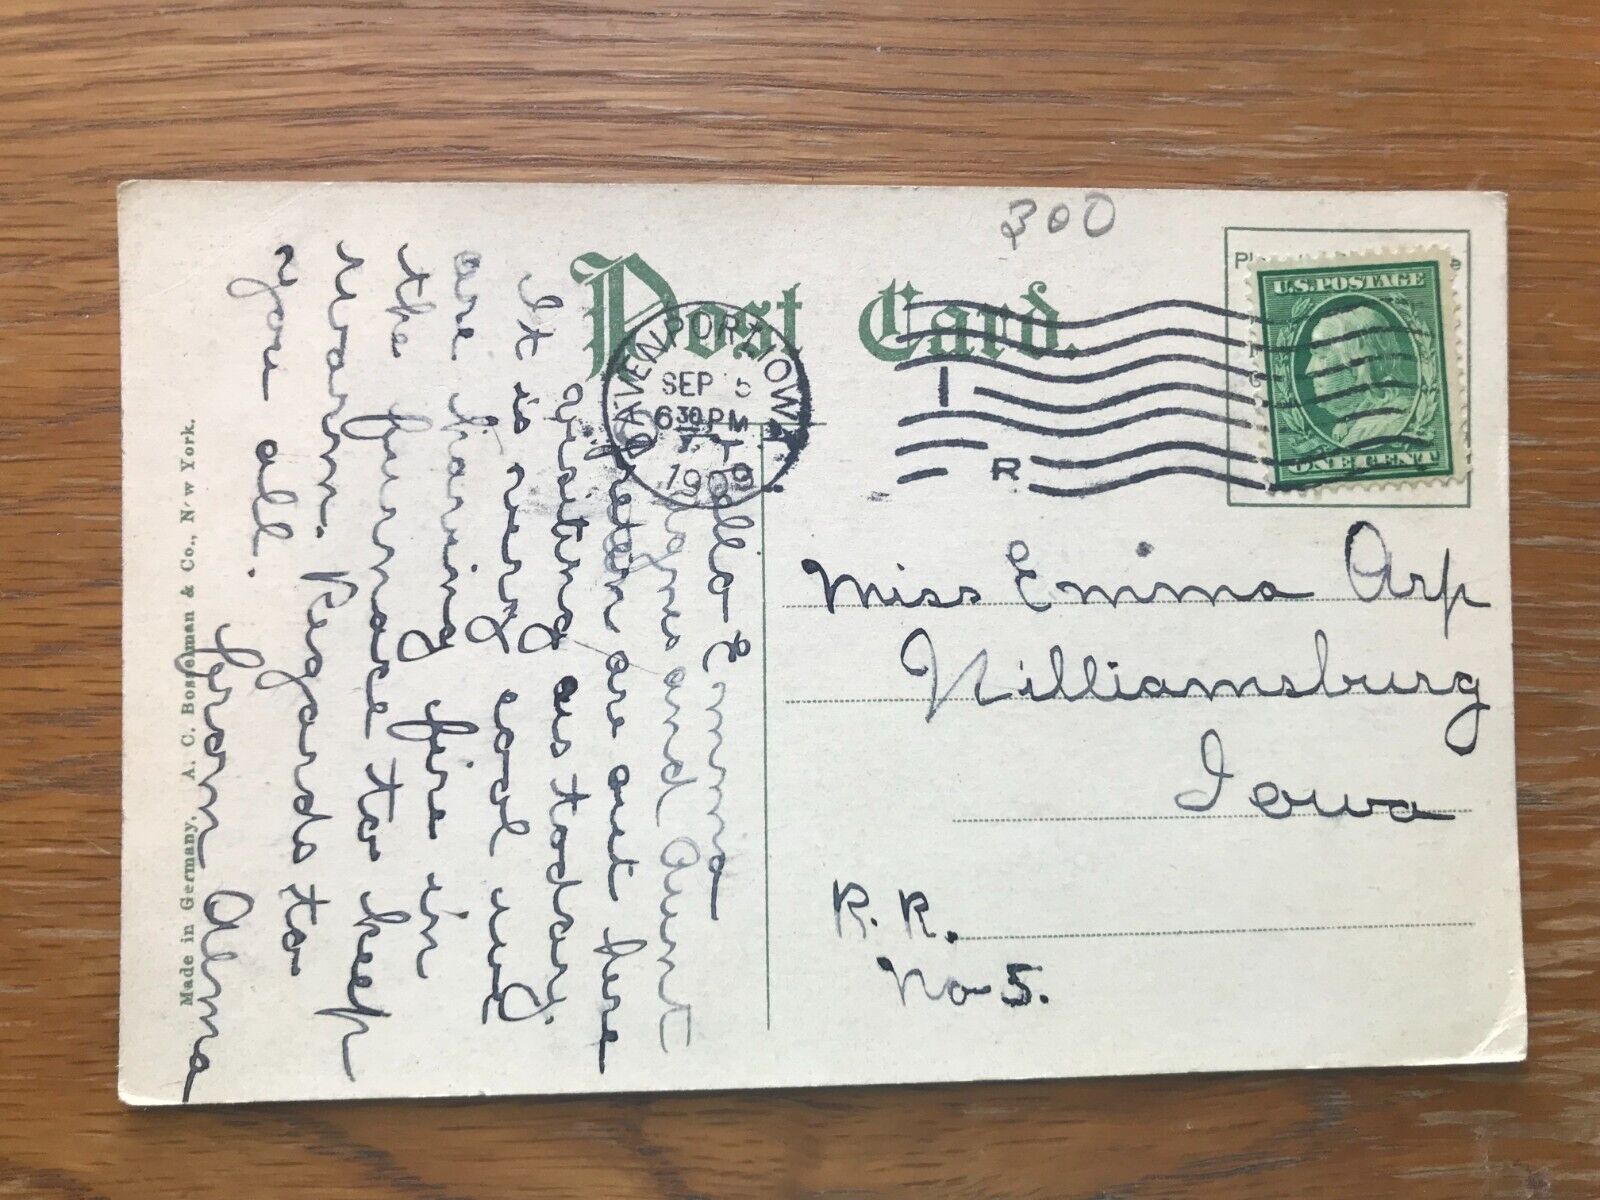 300
Post Card.
U.S. POSTAGE
ONE CENT
DAVENPORT, IOWA
SEP 5
6 30 PM
1909
1
R
Miss Emma Arp
Williamsburg
Iowa
R. R.
No 5.
Hello Emma
Agnes and Aunt
are out here
visiting us today.
It is very cool we
are having fire in
the furnace to keep
warm. Regards to
you all.
From Alma
Made in Germany. A. C. Bosselman & Co., New York.